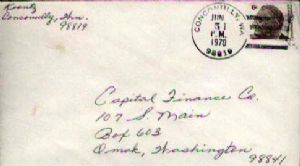 Koontz
Conconully, Wn.
98819
CONCONULLY, WA
JUN
P.M.
1970
98819
Capital Finance Co.
107 S. Main
Box 603
Omak, Washington
98841